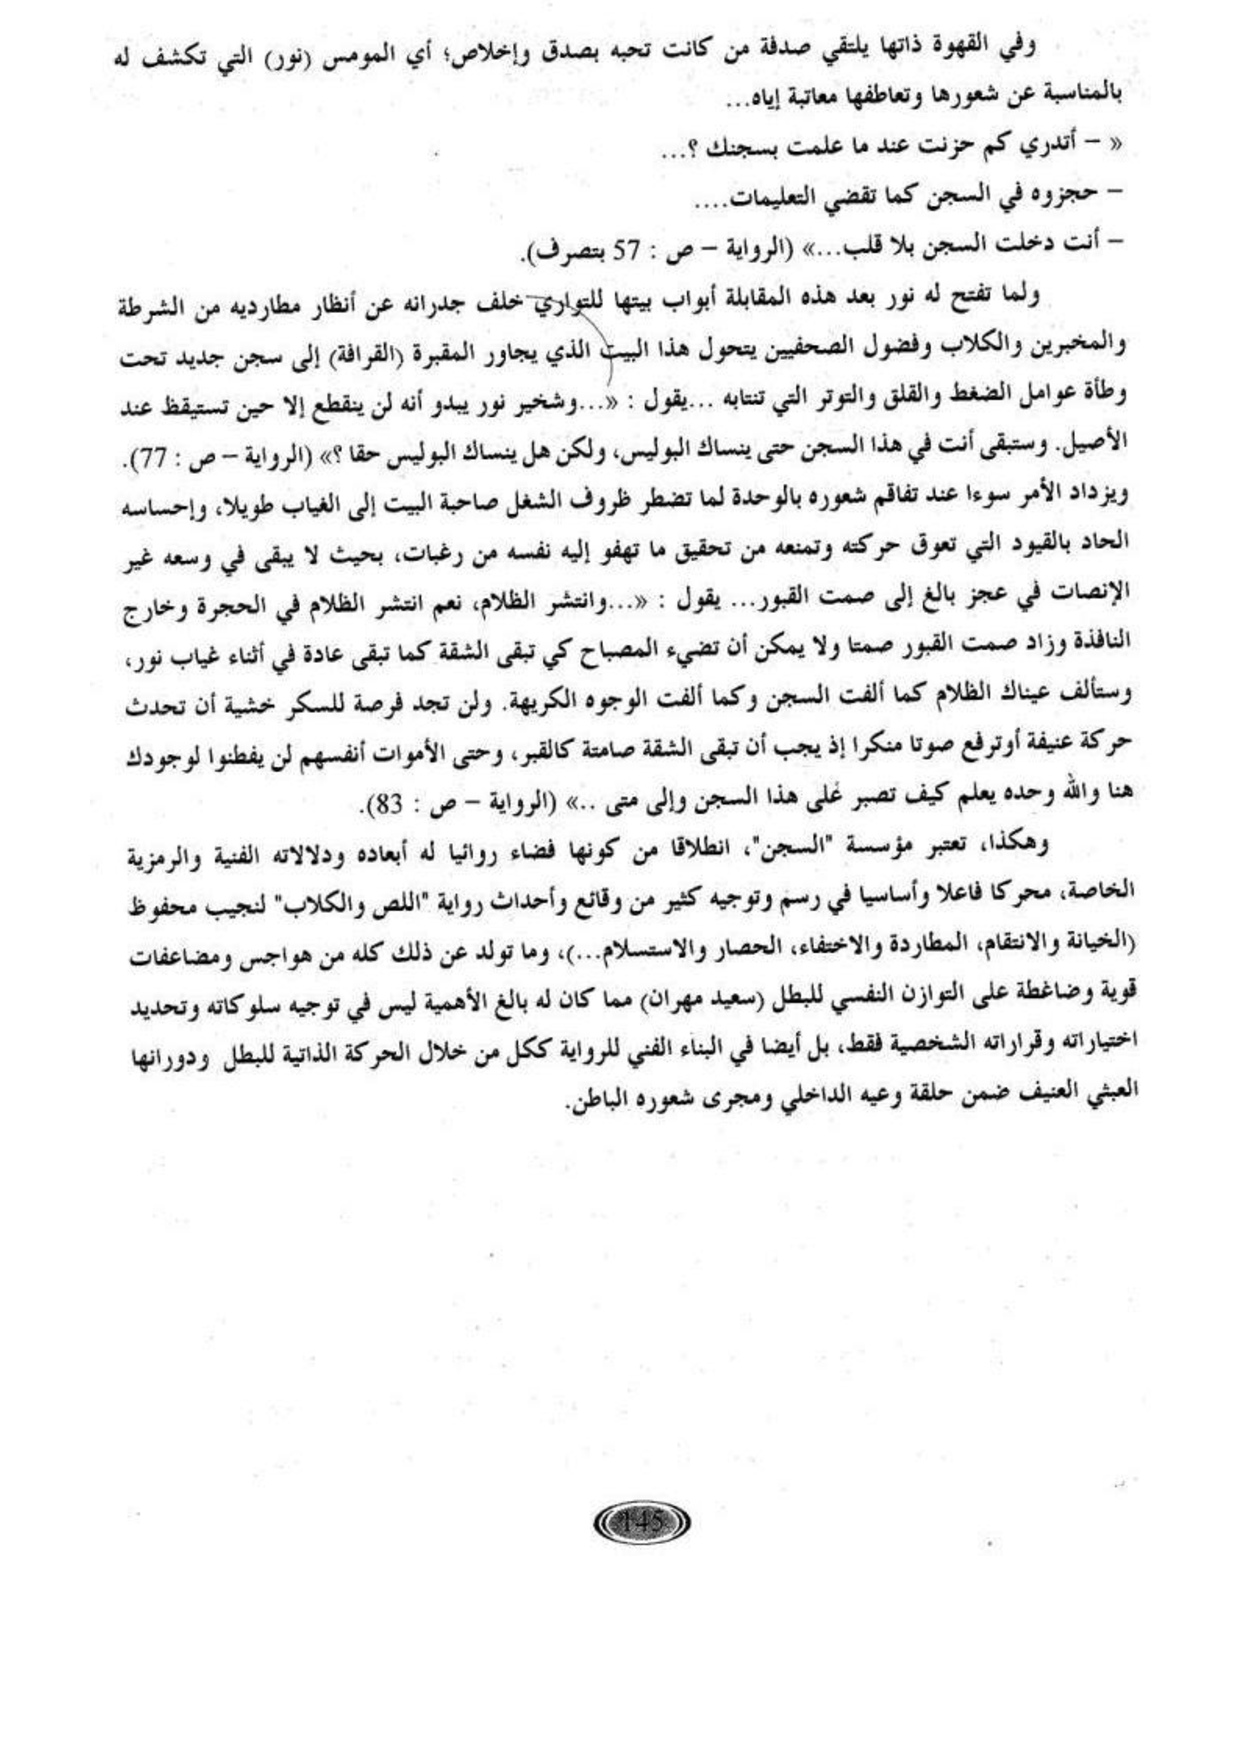 وفي القهوة ذاتها يلتقي صدفة من كانت تحبه بصدق وإخلاص؛ أي المومس (نور) التي تكشف له
بالمناسبة عن شعورها وتعاطفها معاتبة إياه...
« – أتدري كم حزنت عند ما علمت بسجنك ؟...
– حجزوه في السجن كما تقضي التعليمات....
– أنت دخلت السجن بلا قلب...» (الرواية – ص : 57 بتصرف).
ولما تفتح له نور بعد هذه المقابلة أبواب بيتها للتواري خلف جدرانه عن أنظار مطارديه من الشرطة
والمخبرين والكلاب وفضول الصحفيين يتحول هذا البيت الذي يجاور المقبرة (القرافة) إلى سجن جديد تحت
وطأة عوامل الضغط والقلق والتوتر التي تنتابه ...يقول : «...وشخير نور يبدو أنه لن ينقطع إلا حين تستيقظ عند
الأصيل. وستبقى أنت في هذا السجن حتى ينساك البوليس، ولكن هل ينساك البوليس حقا ؟» (الرواية – ص : 77).
ويزداد الأمر سوءا عند تفاقم شعوره بالوحدة لما تضطر ظروف الشغل صاحبة البيت إلى الغياب طويلا، وإحساسه
الحاد بالقيود التي تعوق حركته وتمنعه من تحقيق ما تهفو إليه نفسه من رغبات، بحيث لا يبقى في وسعه غير
الإنصات في عجز بالغ إلى صمت القبور... يقول : «...وانتشر الظلام، نعم انتشر الظلام في الحجرة وخارج
النافذة وزاد صمت القبور صمتا ولا يمكن أن تضيء المصباح كي تبقى الشقة كما تبقى عادة في أثناء غياب نور،
وستألف عيناك الظلام كما ألفت السجن وكما ألفت الوجوه الكريهة. ولن تجد فرصة للسكر خشية أن تحدث
حركة عنيفة أوترفع صوتا منكرا إذ يجب أن تبقى الشقة صامتة كالقبر، وحتى الأموات أنفسهم لن يفطنوا لوجودك
هنا والله وحده يعلم كيف تصبر على هذا السجن وإلى متى ..» (الرواية – ص : 83).
وهكذا، تعتبر مؤسسة "السجن"، انطلاقا من كونها فضاء روائيا له أبعاده ودلالاته الفنية والرمزية
الخاصة، محركا فاعلا وأساسيا في رسم وتوجيه كثير من وقائع وأحداث رواية "اللص والكلاب" لنجيب محفوظ
(الخيانة والانتقام، المطاردة والاختفاء، الحصار والاستسلام...)، وما تولد عن ذلك كله من هواجس ومضاعفات
قوية وضاغطة على التوازن النفسي للبطل (سعيد مهران) مما كان له بالغ الأهمية ليس في توجيه سلوكاته وتحديد
اختياراته وقراراته الشخصية فقط، بل أيضا في البناء الفني للرواية ككل من خلال الحركة الذاتية للبطل ودورانها
العبثي العنيف ضمن حلقة وعيه الداخلي ومجرى شعوره الباطن.
145